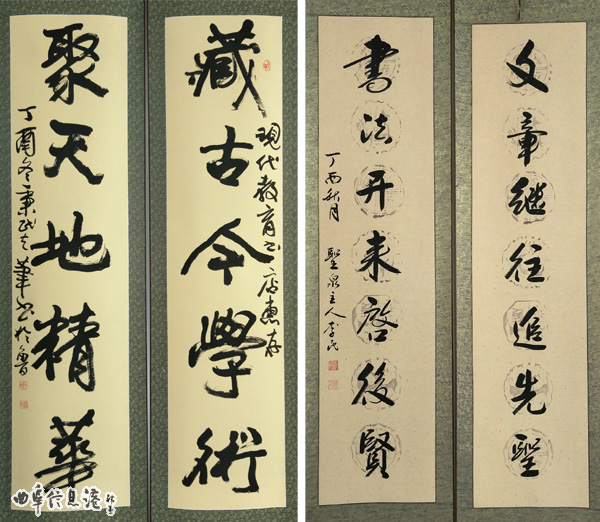 藏古今學術
現代教育书店惠存
聚天地精華
丁酉冬
文章继往追先聖
書法开来啓後賢
丁酉秋月 聖泉主人
曲阜信息港